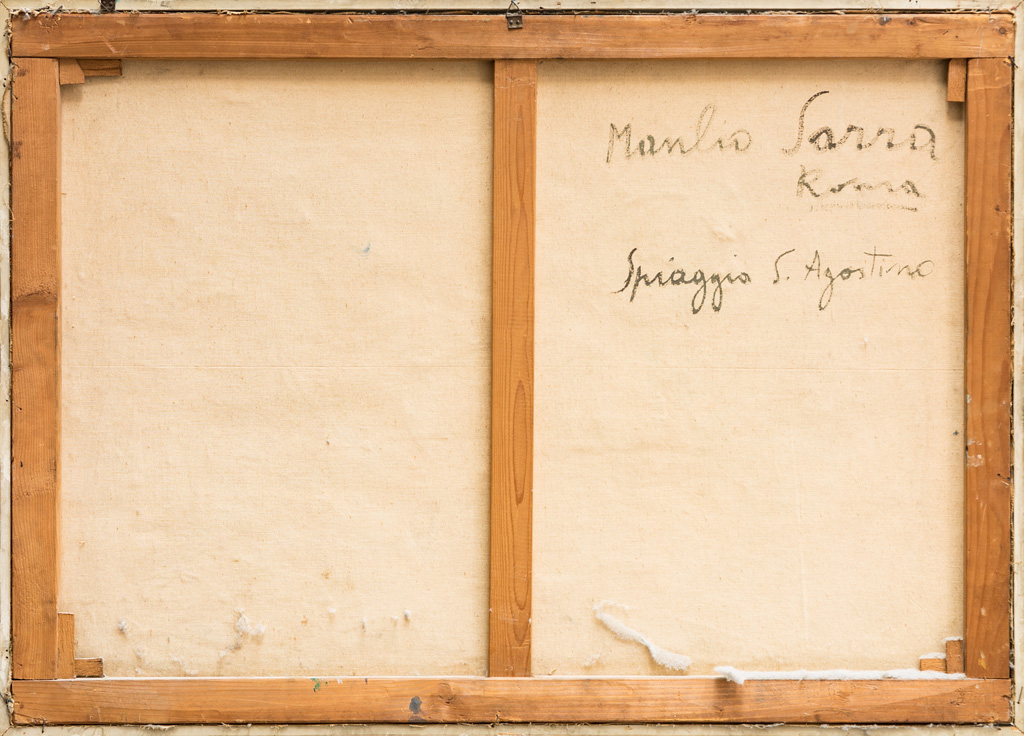 Manlio Sarra
Roma
Spiaggia S. Agostino